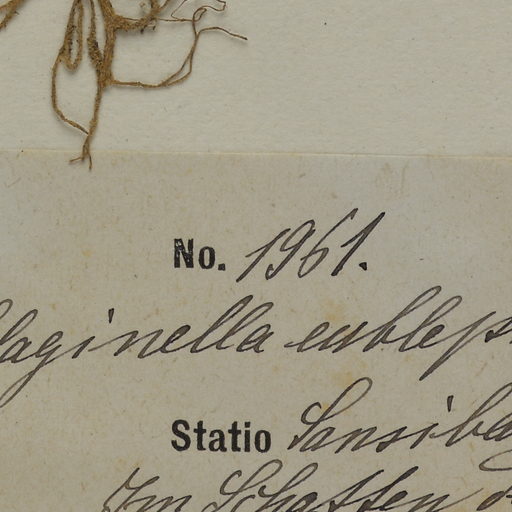 No. 1961.
laginella eubleps
Statio Sansiba
Im Schatten